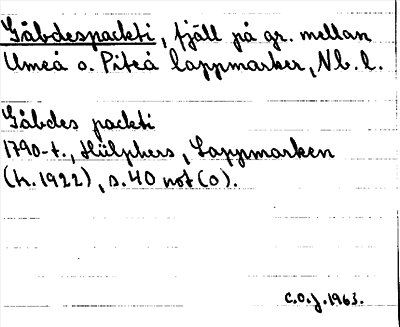 Gåbdespackti, fjäll på gr. mellan
Umeå o. Piteå lappmarker, Nb. l.
Gåbdes packti
1790-t., Hülphers, Lappmarken
(h. 1922), s. 40 not (o).
C.O.J. 1963.